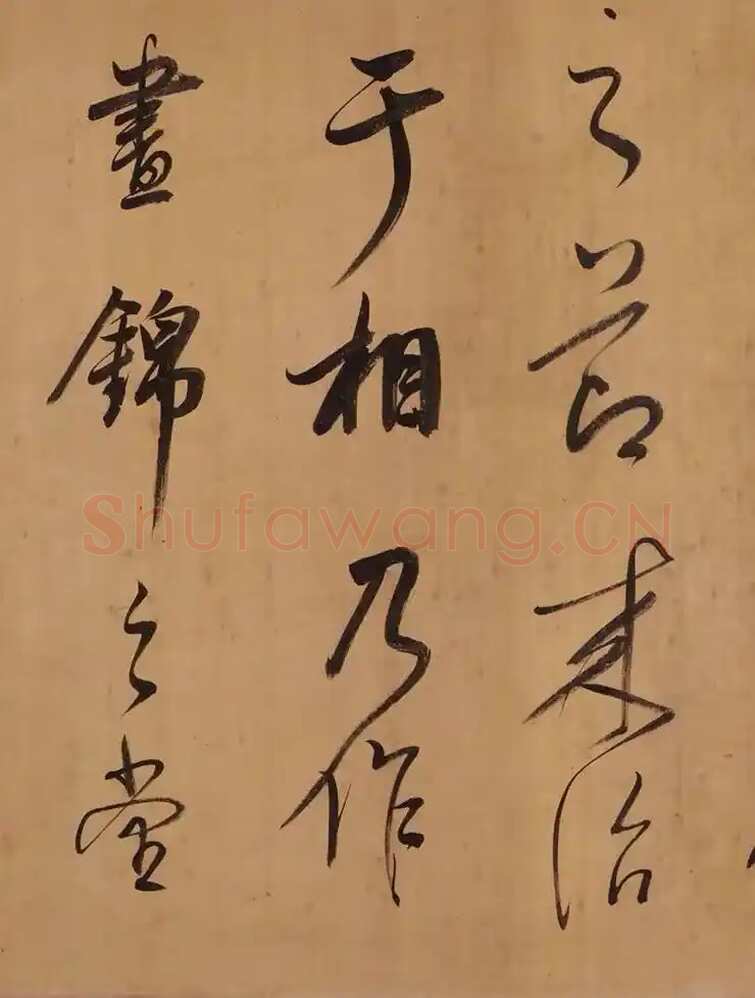 之節来治
于相乃作
晝錦之堂
Shufawang.CN